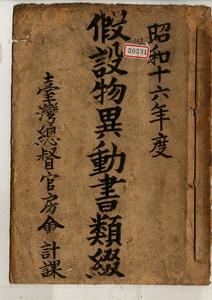 昭和十六年度
20231
假設物異動書類綴
臺灣總督官房會計課